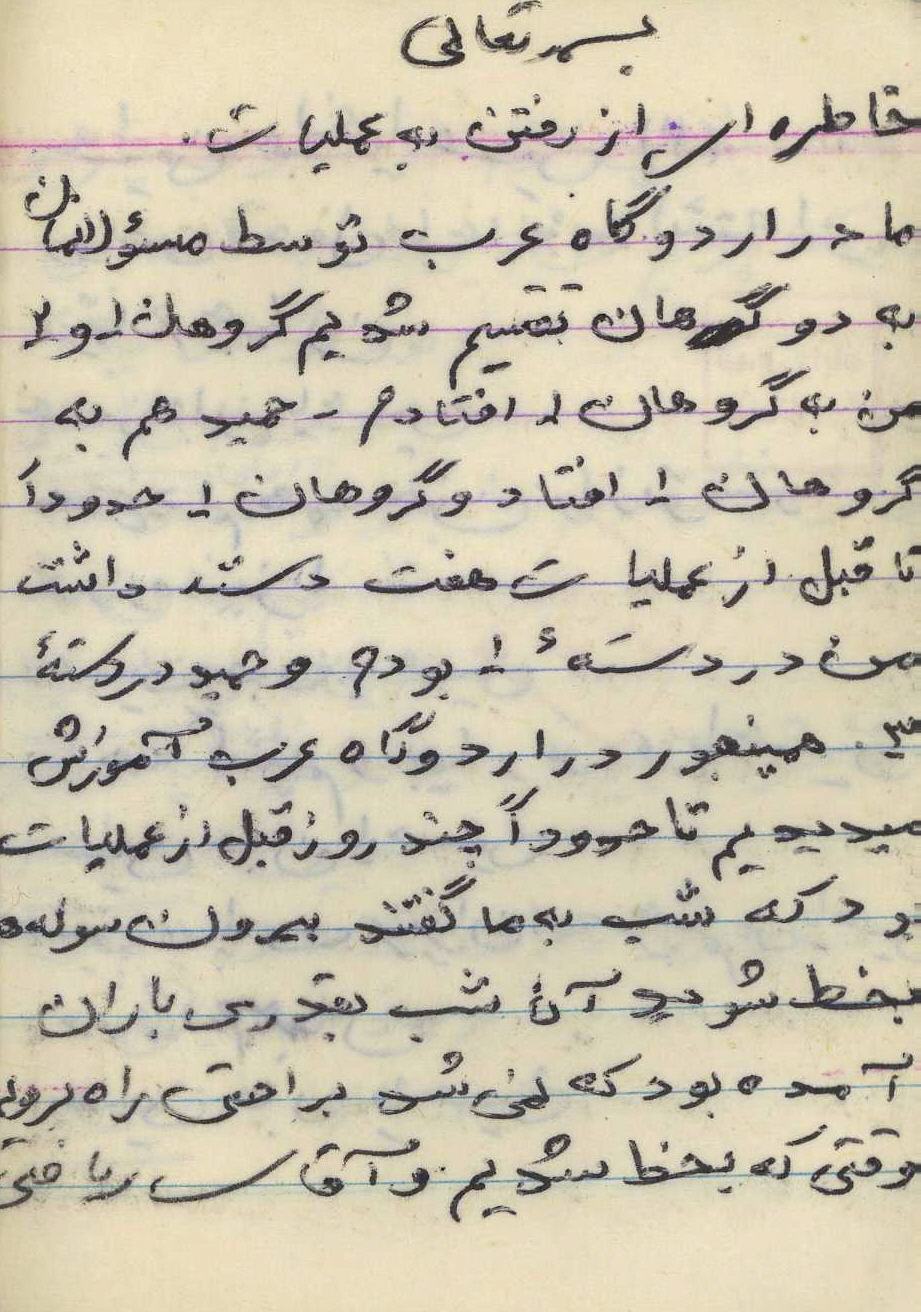 بسمه تعالی
خاطره ای از رفتن به عملیات.
ما در اردوگاه عرب توسط مسؤلمان
به دو گرهان تقسیم شدیم گروهان ۱ و ۲
من به گروهان ۱ افتادم - حمید هم به
گروهان ۱ افتاد و گروهان ۱ حدوداً
تا قبل از عملیات هفت دسته داشت
من در دستهٔ ۱ بودم و حمید در دستهٔ
۳. همینجور در اردوگاه عرب آموزش
میدیدیم تا حدوداً چند روز قبل از عملیات
بود که شب به ما گفتند بیرون سوله ها
بخط شوید آن شب بقدری باران
آمده بود که نمی شد براحتی راه بروید
وقتی که بخط شدیم و آقای ریاضتی